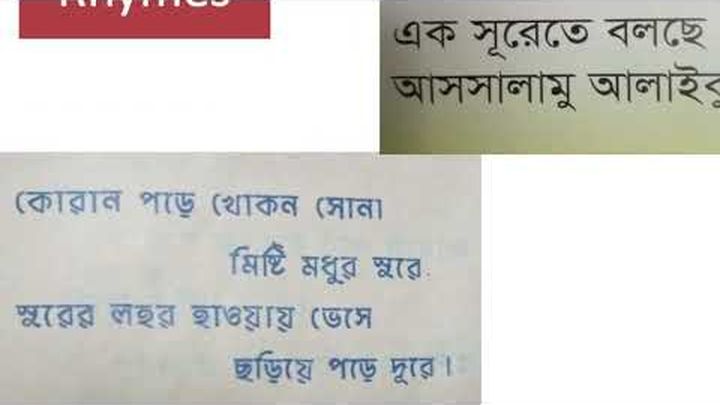 Rhymes
এক সূরেতে বলছে
আসসালামু আলাইকু
কোরান পড়ে খোকন সোনা
মিষ্টি মধুর সুরে.
সুরের লহর হাওয়ায় ভেসে
ছড়িয়ে পড়ে দূরে।